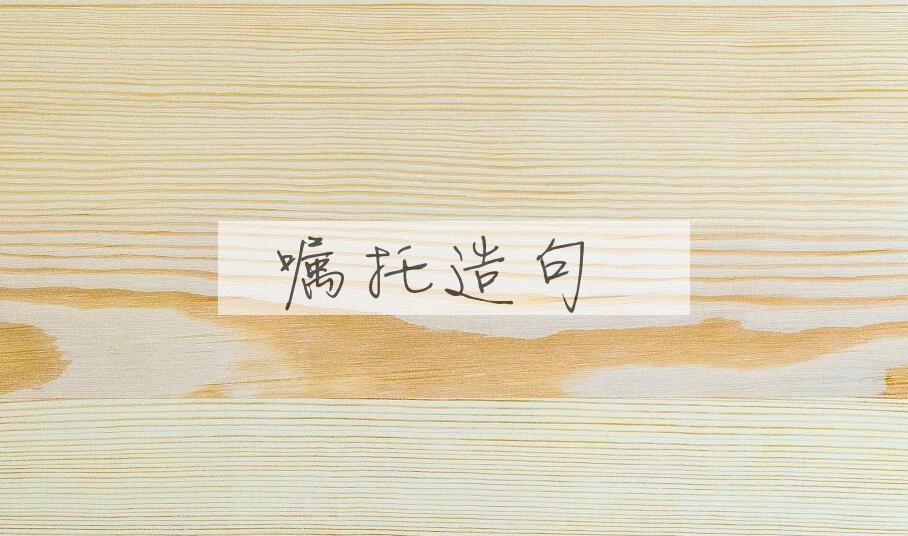 嘱托造句